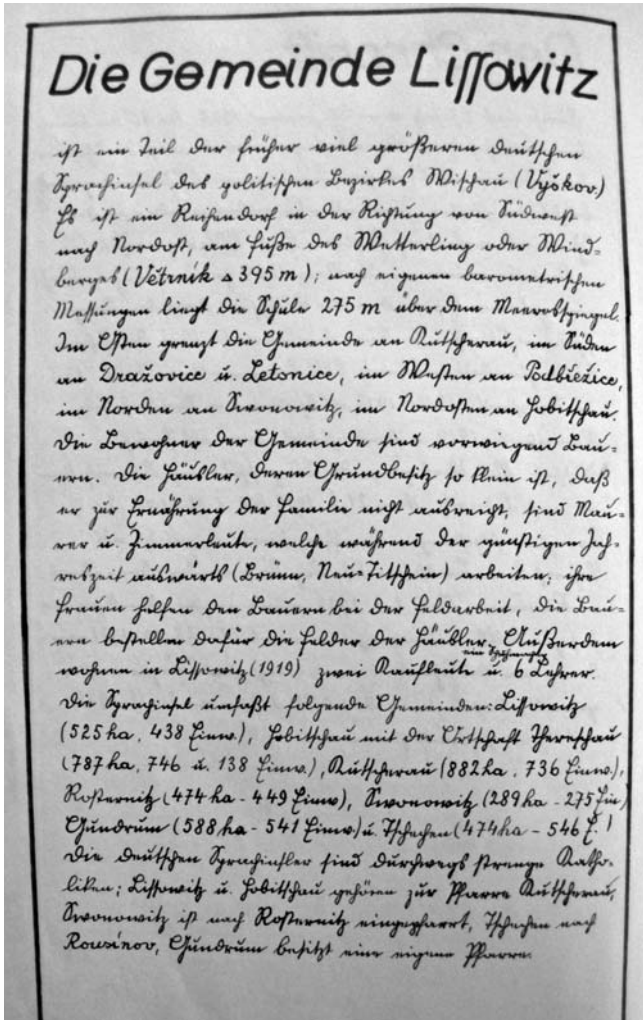 Die Gemeinde Lissowitz
ist ein Teil der früher viel größeren deutschen
Sprachinsel des politischen Bezirkes Wischau (Vyškov.)
Es ist ein Reihendorf in der Richtung von Südwest
nach Nordost, am Fuße des Wetterling oder Wind-
berges (Větrník ▵ 395 m); nach eigenen barometrischen
Messungen liegt die Schule 275 m über dem Meeresspiegel.
Im Osten grenzt die Gemeinde an Kutscherau, im Süden
an Dražovice u. Letonice, im Westen an Podbřežice,
im Norden an Swonowitz, im Nordosten an Hobitschau.
Die Bewohner der Gemeinde sind vorwiegend Bau-
ern. Die Häusler, deren Grundbesitz so klein ist, daß
er zur Ernährung der Familie nicht ausreicht, sind Mau-
rer u. Zimmerleute, welche während der günstigen Jah-
reszeit auswärts (Brünn, Neu-Titschein) arbeiten; ihre
Frauen helfen den Bauern bei der Feldarbeit, die Bau-
ern bestellen dafür die Felder der Häusler. Außerdem
wohnen in Lissowitz (1919) zwei Kaufleute ein u. 6 Lehrer.
Die Sprachinsel umfaßt folgende Gemeinden: Lissowitz
(525 ha, 438 Einw.), Hobitschau mit der Ortschaft Thereschau
(787 ha, 746 u. 138 Einw.), Kutscherau (882 ha, 736 Einw.),
Rosternitz (474 ha - 449 Einw), Swonowitz (289 ha - 275 Ein)
Gundrum (588 ha - 541 Einw.) u. Tschechen (474 ha - 546 E.)
Die deutschen Sprachinsler sind durchwegs strenge Katho-
liken; Lissowitz u. Hobitschau gehören zur Pfarre Kutscherau,
Swonowitz ist nach Rosternitz eingepfarrt, Tschechen nach
Rousínov, Gundrum besitzt eine eigene Pfarre.